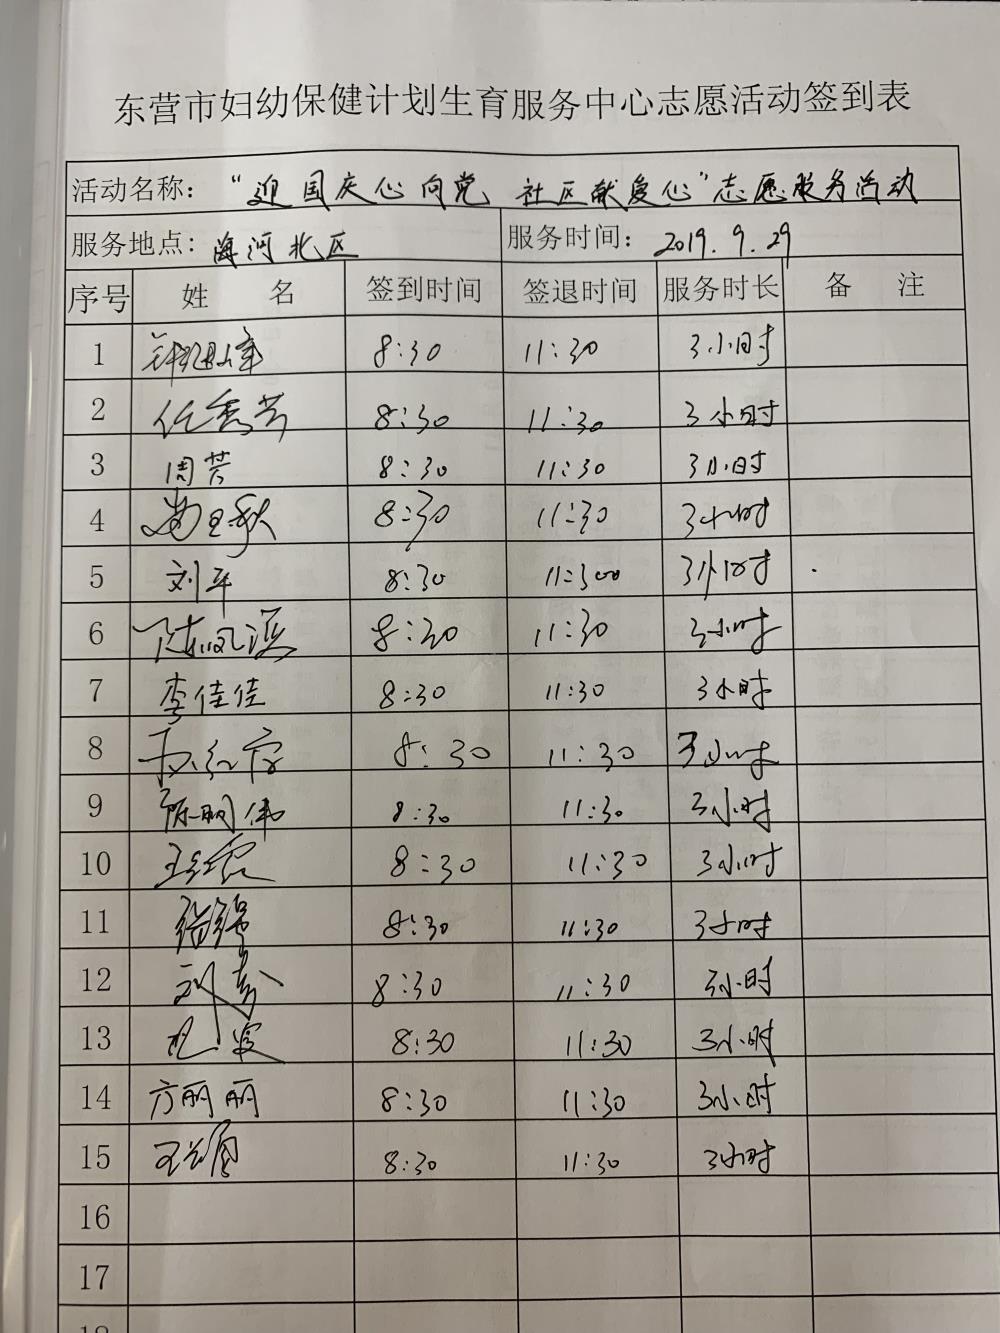 东营市妇幼保健计划生育服务中心志愿活动签到表
活动名称：“迎国庆心向党 社区献爱心”志愿服务活动
服务地点：海河北区 服务时间：2019.9.29
序号 姓 名 签到时间 签退时间 服务时长 备 注
1 8:30 11:30 3小时
2 任秀芳 8:30 11:30 3小时
3 周芳 8:30 11:30 3小时
4 8:30 11:30 3小时
5 刘平 8:30 11:300 3小时
6 8:30 11:30 3小时
7 李佳佳 8:30 11:30 3小时
8 8:30 11:30 3小时
9 陈明伟 8:30 11:30 3小时
10 8:30 11:30 3小时
11 8:30 11:30 3小时
12 8:30 11:30 3小时
13 8:30 11:30 3小时
14 方丽丽 8:30 11:30 3小时
15 8:30 11:30 3小时
16
17
18